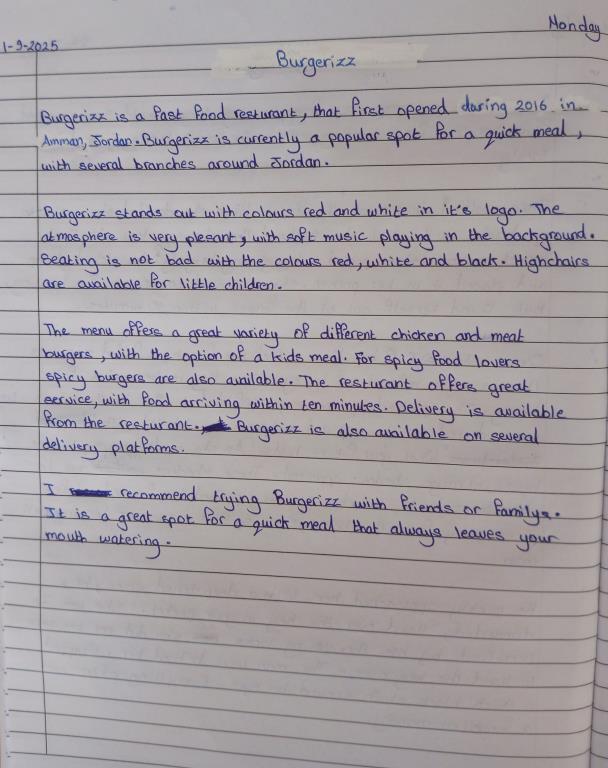 Monday
1-9-2025
Burgerizz
Burgerizz is a fast food resturant, that first opened during 2016 in
Amman, Jordan. Burgerizz is currently a popular spot for a quick meal,
with several branches around Jordan.
Burgerizz stands out with colours red and white in it's logo. The
atmosphere is very plesant, with soft music playing in the background.
Seating is not bad with the colours red, white and black. Highchairs
are available for little children.
The menu offers a great variety of different chicken and meat
burgers, with the option of a kids meal. For spicy food lovers
spicy burgers are also available. The resturant offers great
service, with food arriving within ten minutes. Delivery is available
from the resturant. Burgerizz is also available on several
delivery platforms.
I recommend trying Burgerizz with friends or family.
It is a great spot for a quick meal that always leaves your
mouth watering.